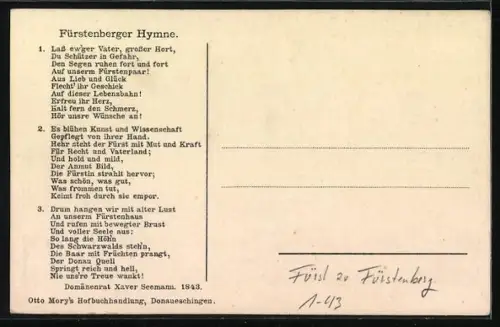 Fürstenberger Hymne.
1. Laß ew'ger Vater, großer Hort,
Du Schützer in Gefahr,
Den Segen ruhen fort und fort
Auf unserm Fürstenpaar!
Aus Lieb und Glück
Flecht' ihr Geschick
Auf dieser Lebensbahn!
Erfreu ihr Herz,
Halt fern den Schmerz,
Hör unsre Wünsche an!
2. Es blühen Kunst und Wissenschaft
Gepflegt von ihrer Hand.
Hehr steht der Fürst mit Mut und Kraft
Für Recht und Vaterland;
Und hold und mild,
Der Anmut Bild,
Die Fürstin strahlt hervor;
Was schön, was gut,
Was frommen tut,
Keimt froh durch sie empor.
3. Drum hangen wir mit alter Lust
An unserm Fürstenhaus
Und rufen mit bewegter Brust
Und voller Seele aus:
So lang die Höhn
Des Schwarzwalds stehn,
Die Baar mit Früchten prangt,
Der Donau Quell
Springt reich und hell,
Nie uns're Treue wankt!
Domänenrat Xaver Seemann. 1843.
Otto Mory's Hofbuchhandlung, Donaueschingen.
Fürst zu Fürstenberg
1-43